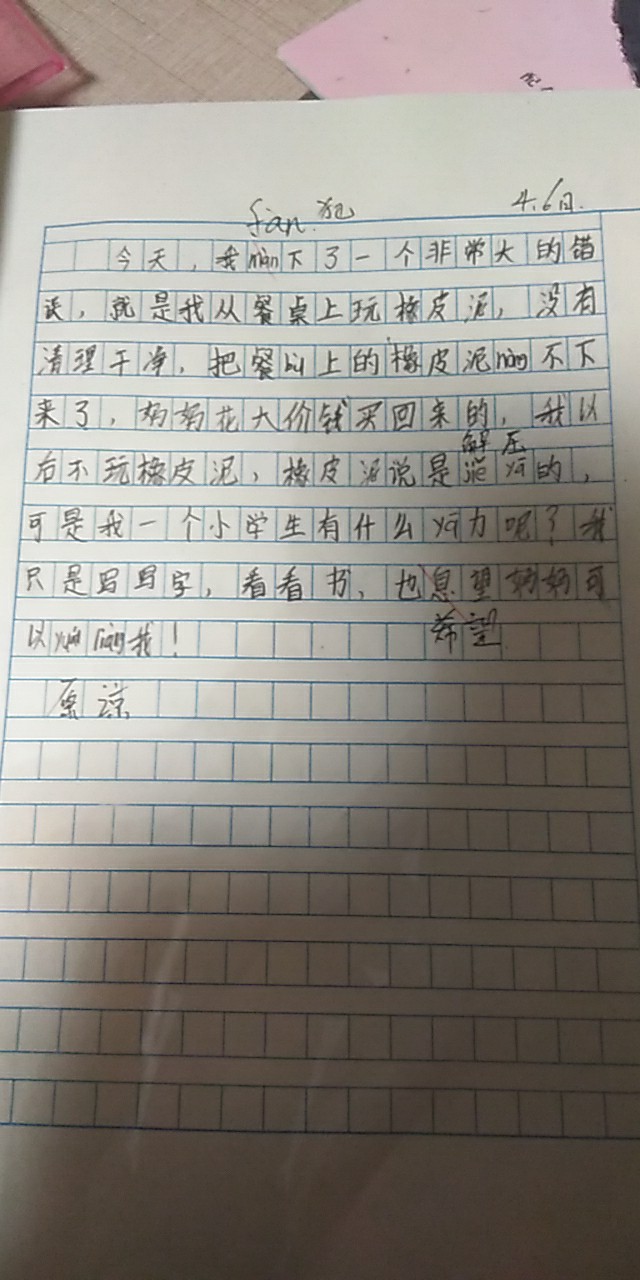 fàn 犯 4.6日.
今天，我fàn下了一个非常大的错
误，就是我从餐桌上玩橡皮泥，没有
清理干净，把餐bù上的橡皮泥nòng不下
来了，奶奶花大价钱买回来的，我以
解压
后不玩橡皮泥，橡皮泥说是 yā的，
可是我一个小学生有什么yā力呢？我
只是写写字，看看书，也息望妈妈可
希望
以yuán liàng我！
原谅